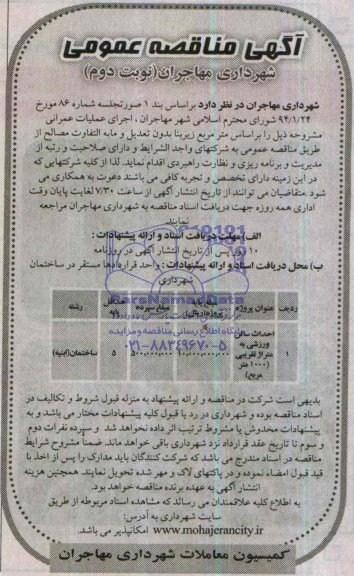 آگهی مناقصه عمومی
شهرداری مهاجران(نوبت دوم)
شهرداری مهاجران در نظر دارد براساس بند ۱ صورتجلسه شماره ۸۶ مورخ
۹۴/۱/۲۴ شورای محترم اسلامی شهر مهاجران ، اجرای عملیات عمرانی
مشروحه ذیل را براساس متر مربع زیربنا بدون تعدیل و مابه التفاوت مصالح از
طریق مناقصه عمومی به شرکتهای واجد الشرایط و دارای صلاحیت و رتبه از
مدیریت و برنامه ریزی و نظارت راهبردی اقدام نماید. لذا از کلیه شرکتهایی که
در این زمینه دارای تخصص و تجربه کافی می باشند دعوت به همکاری می
شود .متقاضیان می توانند از تاریخ انتشار آگهی از ساعت ۷/۳۰ لغایت پایان وقت
اداری همه روزه جهت دریافت اسناد مناقصه به شهرداری مهاجران مراجعه
نمایند.
الف) مهلت دریافت اسناد و ارائه پیشنهادات :
۱۰ روز پس از تاریخ انتشار آگهی در روزنامه
ب) محل دریافت اسناد و ارائه پیشنهادات : واحد قراردادها مستقر در ساختمان
شهرداری
ParsNamadData
پایگاه اطلاع رسانی مناقصه و مزایده
۰۲۱-۸۸۳۴۹۶۷۰-۵
ردیف عنوان پروژه مبلغ سپرده رشته
۱ احداث سالن ورزشی به متراژ تقریبی (۱۰۰۰ متر مربع) ۱۰،۰۰۰،۰۰۰،۰۰۰ ۵۰۰،۰۰۰،۰۰۰ ۵ ساختمان(ابنیه)
بدیهی است شرکت در مناقصه و ارائه پیشنهاد به منزله قبول شروط و تکالیف در
اسناد مناقصه بوده و شهرداری در رد یا قبول کلیه پیشنهادات مختار می باشد و به
پیشنهادات مخدوش یا مشروط ترتیب اثر داده نخواهد شد و سپرده نفرات دوم
و سوم تا تاریخ عقد قرارداد نزد شهرداری باقی خواهد ماند. ضمنا مشروح شرایط
مناقصه در اسناد مندرج می باشد که شرکت کنندگان باید مدارک را پس از اخذ با
قید قبول امضاء نموده و در پاکتهای لاک و مهر شده تحویل نمایند. همچنین هزینه
انتشار آگهی به عهده برنده مناقصه خواهد بود.
به اطلاع کلیه علاقمندان می رساند که مشاهده اسناد مربوطه از طریق
سایت شهرداری به آدرس:
www.mohajerancity.ir امکانپذیر می باشد.
کمیسیون معاملات شهرداری مهاجران